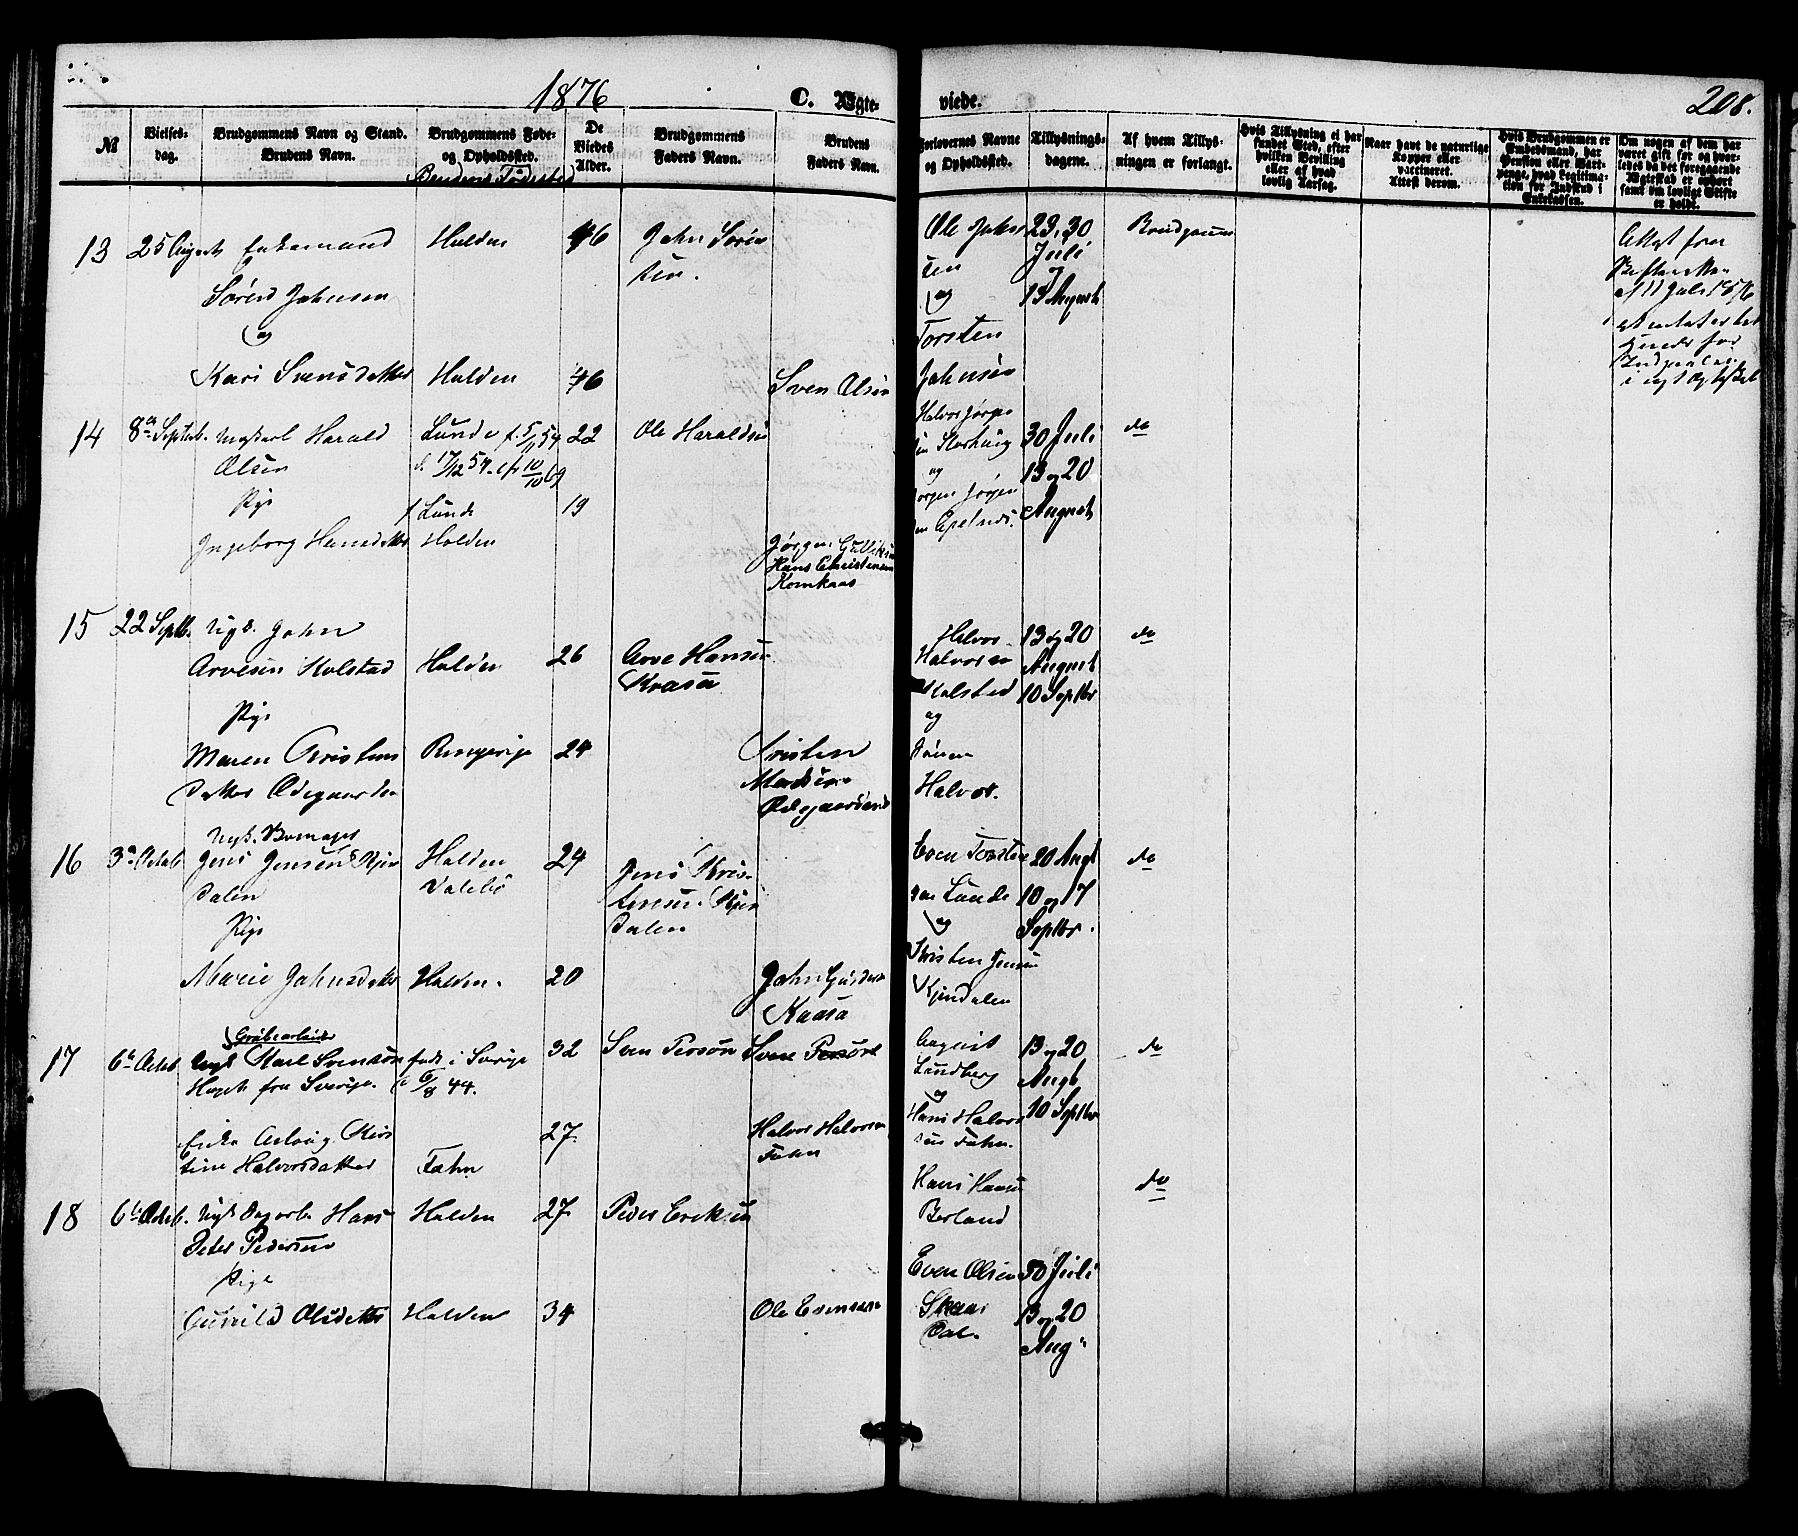 1876
C. Ægte-
viede.
208.
№
Vielses-
dag.
Brudgommens Navn og Stand.
Brudens Navn.
Brudgommens Føde-
og Opholdssted.
De
Viedes
Alder.
Brudgommens
Faders Navn.
Brudens
Faders Navn.
Forlovernes Navne
og Opholdssted.
Tillysnings-
dagene.
Af hvem Tillys-
ningen er forlangt.
Hvis Tillysning ei har
fundet Sted, efter
hvilken Bevilling
eller af hvad
lovlig Aarsag.
Naar havt de naturlige
Kopper eller
vaccineret.
Attest derom.
Hvis Brudgommen er
Embedsmand, har
Pension eller Vart-
penge, hvad Legitima-
tion for Indskud i
Enkekassen.
Om nogen af dem har
været gift før og hvor-
ledes da det foregaaende
Ægteskab er ophørt
samt om lovligt Skifte
er holdt.
13
25 August
Enkemand
Søren Johnsen
og
Kari Svensdatter
Holden
Holden
46
46
John Søren
sen.
Sven Olsen
Ole John
sen
og
Torsten
Johnsen
23, 30
Juli
og
13 August
Brudgommen
Attest fra
af 11 Juli 1876
14
8de Septeb.
Harald
Olsen
Pige
Ingeborg Hansdatter
Lunde f. 5/11 54
d. 17/12 54. cf 10/10 69
f Lunde
Holden
22
19
Ole Haraldsen
Jørgen Gulliksen
Hans Christensen
Komkaas
Halvor Jørgen
sen
og
Jørgen Jørgen
sen
30 Juli
13 og 20
August
do
15
22 Septb.
Ungk. John
Arvesen Holstad
Pige
Maren Kristens
datter Ødegaarden
Holden
Ringerige
26
24
Arve Hansen
Kaasa
Kristen
Madsen
Ødegaarden
Halvor
Halvorsen
Holstad
og
Halvor.
13 og 20
August
10 Septbr
do
16
3de Octob
Ungk.
Jens Jensen Kjen
dalen
Pige
Marie Johnsdatter
Holden
Valebø
Holden.
24
20
Jens Kris-
tensen Kjen
dalen
John
Kaasa
Even Torsten
sen Lunde
og
Kristen Jensen
Kjendalen
20 Augt
10 og 17
Septbr.
do
17
6te Octob
Grubearbeider
Ungk Karl Svenson
fra Sverige.
Enke Aslaug Kirs
tine Halvorsdatter
født i Sverige
6/8 44.
Fæhn
32
27
Sven Person
Sven Person
Halvor Halvorsen
Fæhn
August
Lundberg
og
Hans Halvor
sen Fæhn.
13 og 20
Augt
10 Septbr
do
18
6te Octob.
Ungk Dagarb. Hans
Peter Pedersen
Pige
Gunild Olsdatter
Holden
Holden
27
34
Peder Eriksen
Ole Evensen
Hans Hansen
Berland
Even Olsen
Skaar
Dal.
30 Juli
13 og 20
Aug.
do